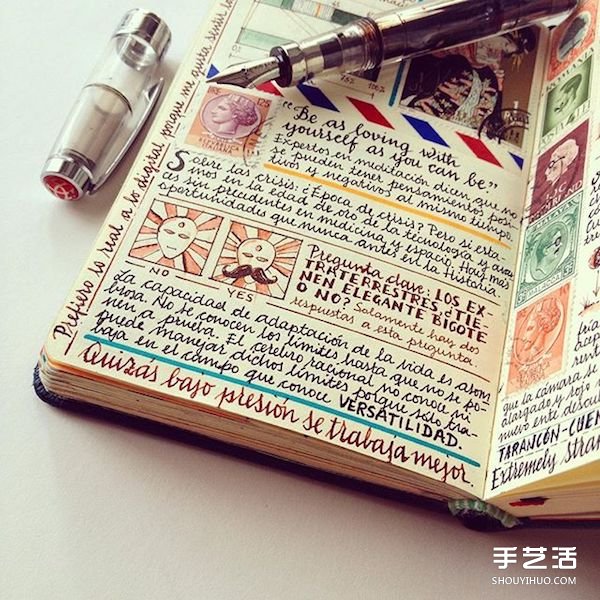 Prefiero lo real a lo digital porque me gusta sentir la
76%
100%
LIRE 125
"Be as loving with
yourself as you can be."
Expertos en meditación dicen que no
se pueden tener pensamientos posi-
tivos y negativos al mismo tiempo.
Sobre las crisis: ¿Época de crisis? Pero si esta-
mos en la edad de oro de la tecnología y avan-
ces sin precedentes en medicina y espacio. Hay más
oportunidades que nunca antes en la historia.
NO
YES
Pregunta clave: LOS EX-
TRATERRESTRES ¿TIE-
NEN ELEGANTE BIGOTE
O NO? Solamente hay dos
respuestas a esta pregunta.
La capacidad de adaptación de la vida es asom
brosa. No se conocen los límites hasta que no se po-
nen a prueba. El cerebro racional no conoce ni
puede manejar dichos límites porque sólo tra-
baja en el campo que conoce VERSATILIDAD.
Quizás bajo presión se trabaja mejor.
ROMANA
que la cámara se
alargado y rojo
nuevo ente descu
TARANCÓN-CUEN
Extremely Stran
手艺活
SHOUYIHUO.COM